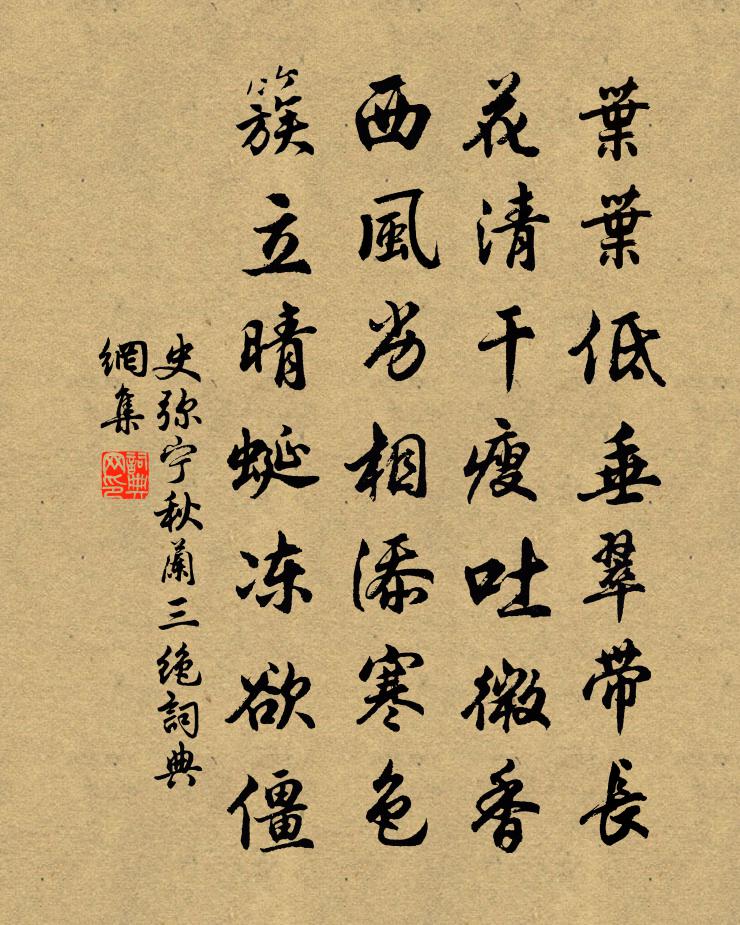 葉葉低垂翠帶長
花清干瘦吐微香
西風劣相添寒色
簇立晴蜒冻欲僵
史弥宁秋蘭三绝詞典
網集
詞典网印